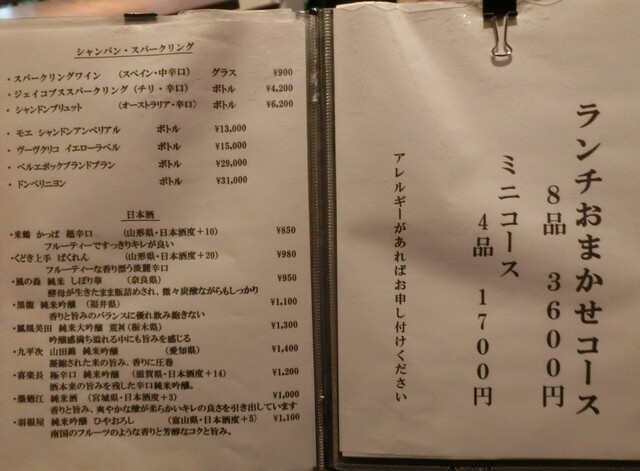 シャンパン・スパークリング
・スパークリングワイン （スペイン・中辛口） グラス ¥900
・ジェイコブススパークリング（チリ・辛口） ボトル ¥4,200
・シャンドンブリュット （オーストラリア・辛口） ボトル ¥6,200
・モエ シャンドンアンペリアル ボトル ¥13,000
・ヴーヴクリコ イエローラベル ボトル ¥15,000
・ベルエポックブランドブラン ボトル ¥29,000
・ドンペリニヨン ボトル ¥31,000
日本酒
・米鶴 かっぱ 超辛口 （山形県・日本酒度＋10） ¥850
フルーティーですっきりキレが良い
・くどき上手 ばくれん （山形県・日本酒度＋20） ¥980
フルーティーな香り漂う淡麗辛口
・風の森 純米 しぼり華 （奈良県） ¥950
酵母が生きたまま瓶詰めされ、微々炭酸ながらもしっかり
・黒龍 純米吟醸 （福井県） ¥1,100
香りと旨みのバランスに優れ飲み飽きない
・鳳凰美田 純米大吟醸 荒神（栃木県） ¥1,300
吟醸感満ち溢れる中にも旨みを感じる
・九平次 山田錦 純米吟醸 （愛知県） ¥1,400
凝縮された米の旨み、香りに圧巻
・喜楽長 極辛口 純米吟醸 （滋賀県・日本酒度＋14） ¥1,200
酒本来の旨みを残した辛口純米吟醸。
・墨廼江 純米酒 （宮城県・日本酒度＋3） ¥1,000
香りと旨み、爽やかな酸が柔らかいキレの良さを引き出しています
・羽根屋 純米吟醸 ひやおろし （富山県・日本酒度＋5） ¥1,100
南国のフルーツのような香りと芳醇なコクと旨み。
ランチおまかせコース
8品 3600円
ミニコース
4品 1700円
アレルギーがあればお申し付けください